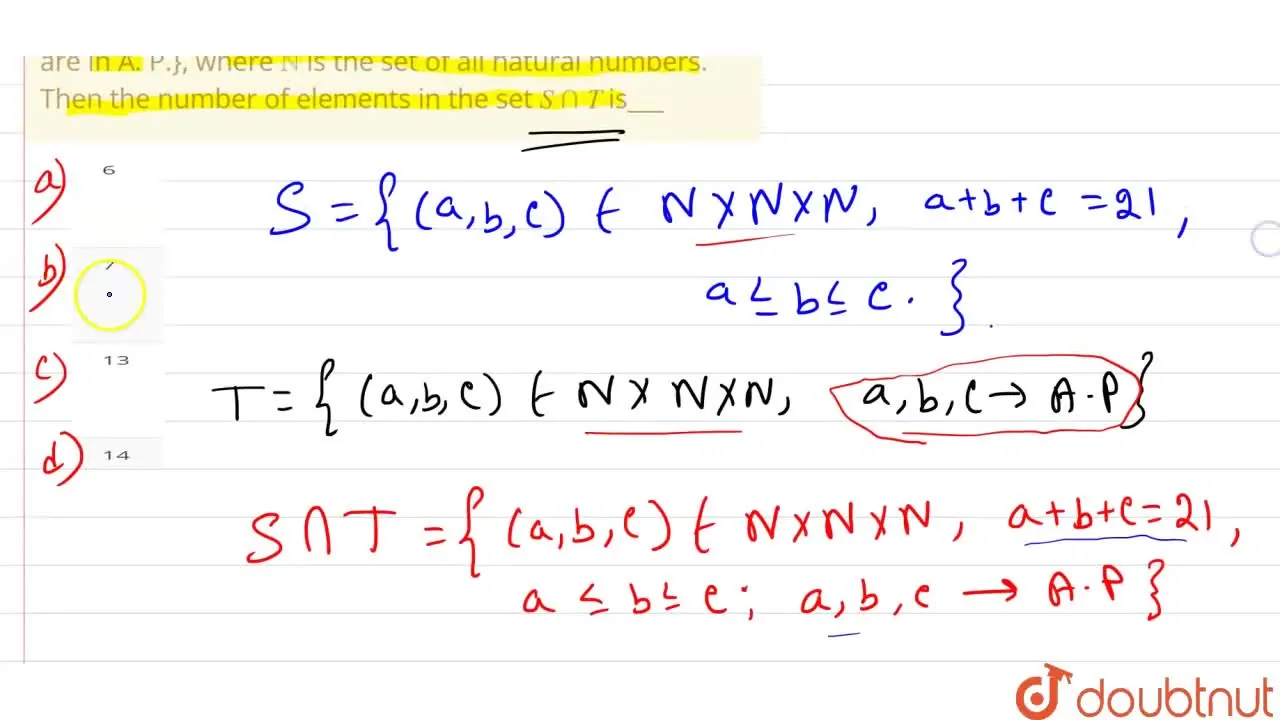 are in A. P.}, where N is the set of all natural numbers.
Then the number of elements in the set S ∩ T is___
a) 6
S = {(a, b, c) ∈ N×N×N, a+b+c = 21,
b) 7
a ≤ b ≤ c. }
c) 13
T = {(a, b, c) ∈ N × N×N, a, b, c → A.P}
d) 14
S ∩ T = {(a, b, c) ∈ N×N×N, a+b+c=21,
a ≤ b ≤ c; a, b, c → A.P }
doubtnut